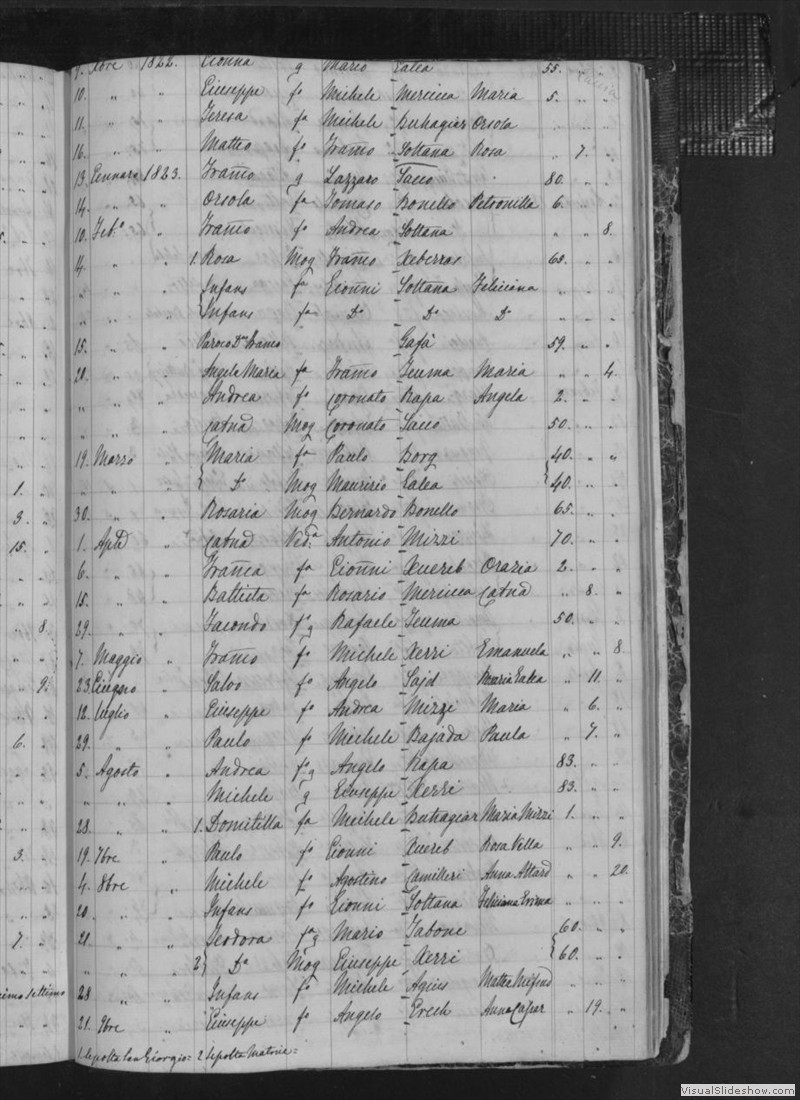 7. Xbre 1822. Gionna g Mario Galea 55.
10. " " Giuseppe fo Michele Mercieca Maria 5. " "
11. " " Teresa fa Michele Buhagiar Orsola " "
16. " " Matteo fo Franco Soltana Rosa " 7. "
13. Gennaro 1823. Franco g Lazzaro Sacco 80. "
14. " " Orsola fa Tomaso Bonello Petronilla 6. "
10. Feb.o " Franco fo Andrea Soltana " " 8.
14. " " 1. Rosa Mog Franco Xeberras 68. "
" " Infans fa Gionni Soltana Feliciana " "
" " Infans fa Do Do Do " "
15. " " Paroco Dn Franco Gafà 59. " "
28. " " Angela Maria fa Franco Teuma Maria " " 4.
" " " Andrea fo Coronato Rapa Angela 2. " "
" " " Catna Mog Coronato Sacco 50. " "
19. Marzo " Maria fa Paulo Borg 40. " "
" " Da Mog Maurizio Galea 40. "
30. " " Rosaria Mog Bernardo Bonello 65. " "
1. Aple " Catna Ved.a Antonio Mizzi 70. " "
6. " " Franca fa Gionni Xuereb Orazia 2. " "
15. " " Battista fo Rosario Mercieca Catna " 8. "
29. " " Facondo fo g Rafaele Teuma 50. " "
7. Maggio " Franco fo Michele Xerri Emanuela " " 8
23. Giugno " Salvo fo Angelo Sajd Maria Galea " 11. "
12. Luglio " Giuseppe fo Andrea Mizzi Maria " 6. "
29. " " Paulo fo Michele Bajada Paula " 7. "
5. Agosto " Andrea fo g Angelo Rapa 83. " "
" " Michele g Giuseppe Xerri 83. " "
28. " " 1. Domitilla fa Michele Buhagiar Maria Mizzi 1. " "
19. 7bre " Paulo fo Gionni Xuereb Rosa Vella " " 9.
4. 8bre " Michele fo Agostino Camilleri Anna Attard " " 20.
20. " " Infans fo Gionni Soltana Feliciana " " "
21. " " Teodora fa g Mario Tabone 60. " "
" " " 2 Da Mog Giuseppe Xerri 60. "
28 " " Infans fo Michele Agius Mattea Mifsud " "
21. 9bre " Giuseppe fo Angelo Grech Anna " 19. "
1. Sepolta San Giorgio = 2 Sepolta Matrice =
1. "
3. "
15. "
8.
9.
6. "
3. "
7. "
settimo
VisualSlideshow.com